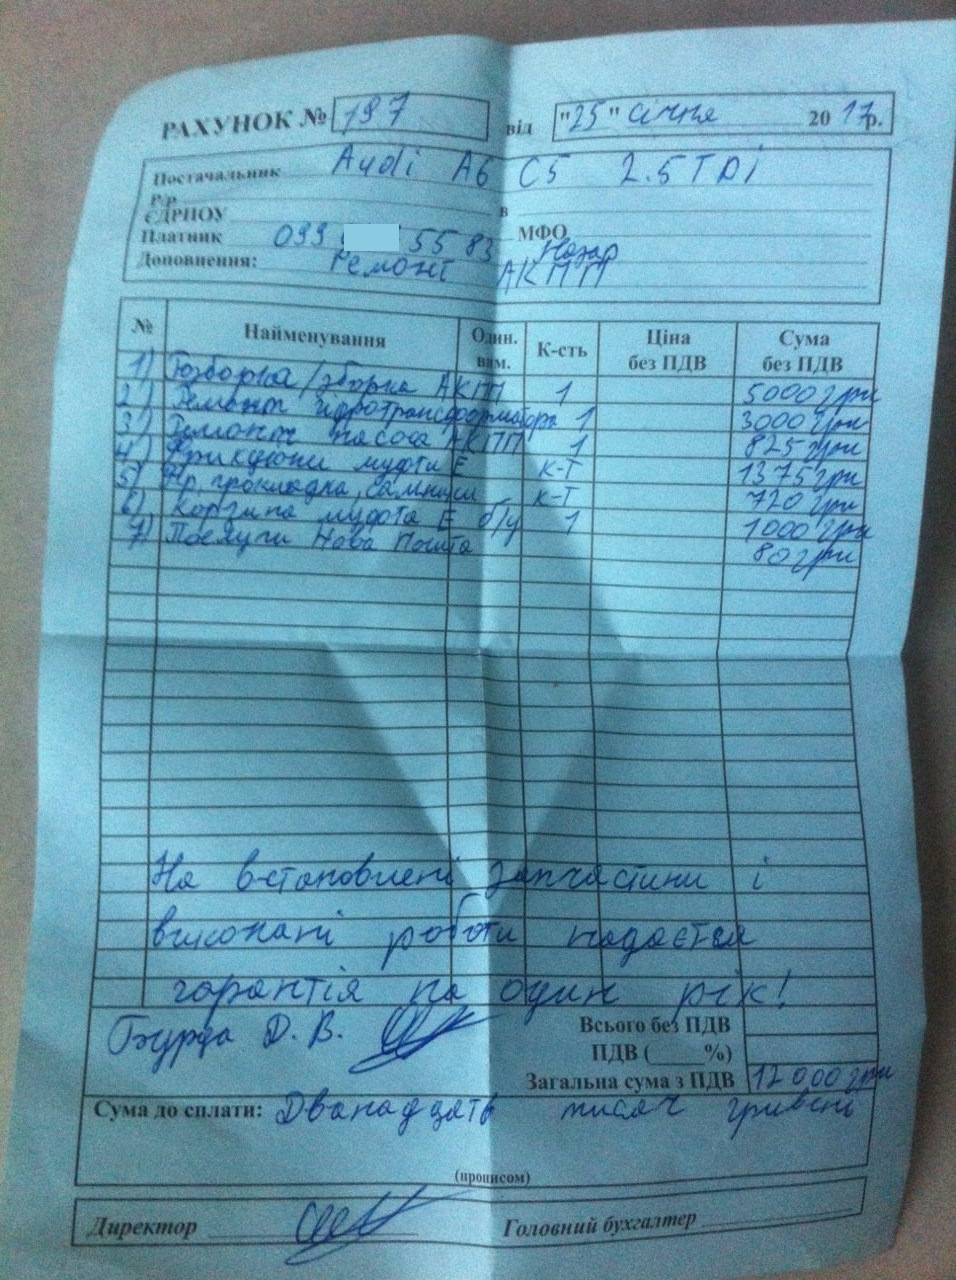 РАХУНОК № 197 від "25" січня 2017р.
Постачальник Audi A6 C5 2.5 TDi
Р/р в
ЄДРПОУ МФО
Платник 099 55 83 Назар
Доповнення: Ремонт АКПП
№ Найменування Один. вим. К-сть Ціна без ПДВ Сума без ПДВ
1) Розборка/зборка АКПП 1 5000 грн
2) Ремонт гідротрансформатора 1 3000 грн
3) Ремонт насоса АКПП 1 825 грн
4) Фрикціони муфти Е к-т 1375 грн
5) Кр. прокладка, сальніки к-т 720 грн
6) Корзина муфта Е б/у 1 1000 грн
7) Послуги Нова Пошта 80 грн
На встановлені запчастини і
виконані роботи надається
гарантія на один рік!
Бурда Д. В. Всього без ПДВ
ПДВ (____%)
Загальна сума з ПДВ 12 000 грн
Сума до сплати: Дванадцять тисяч гривень
(прописом)
Директор Головний бухгалтер